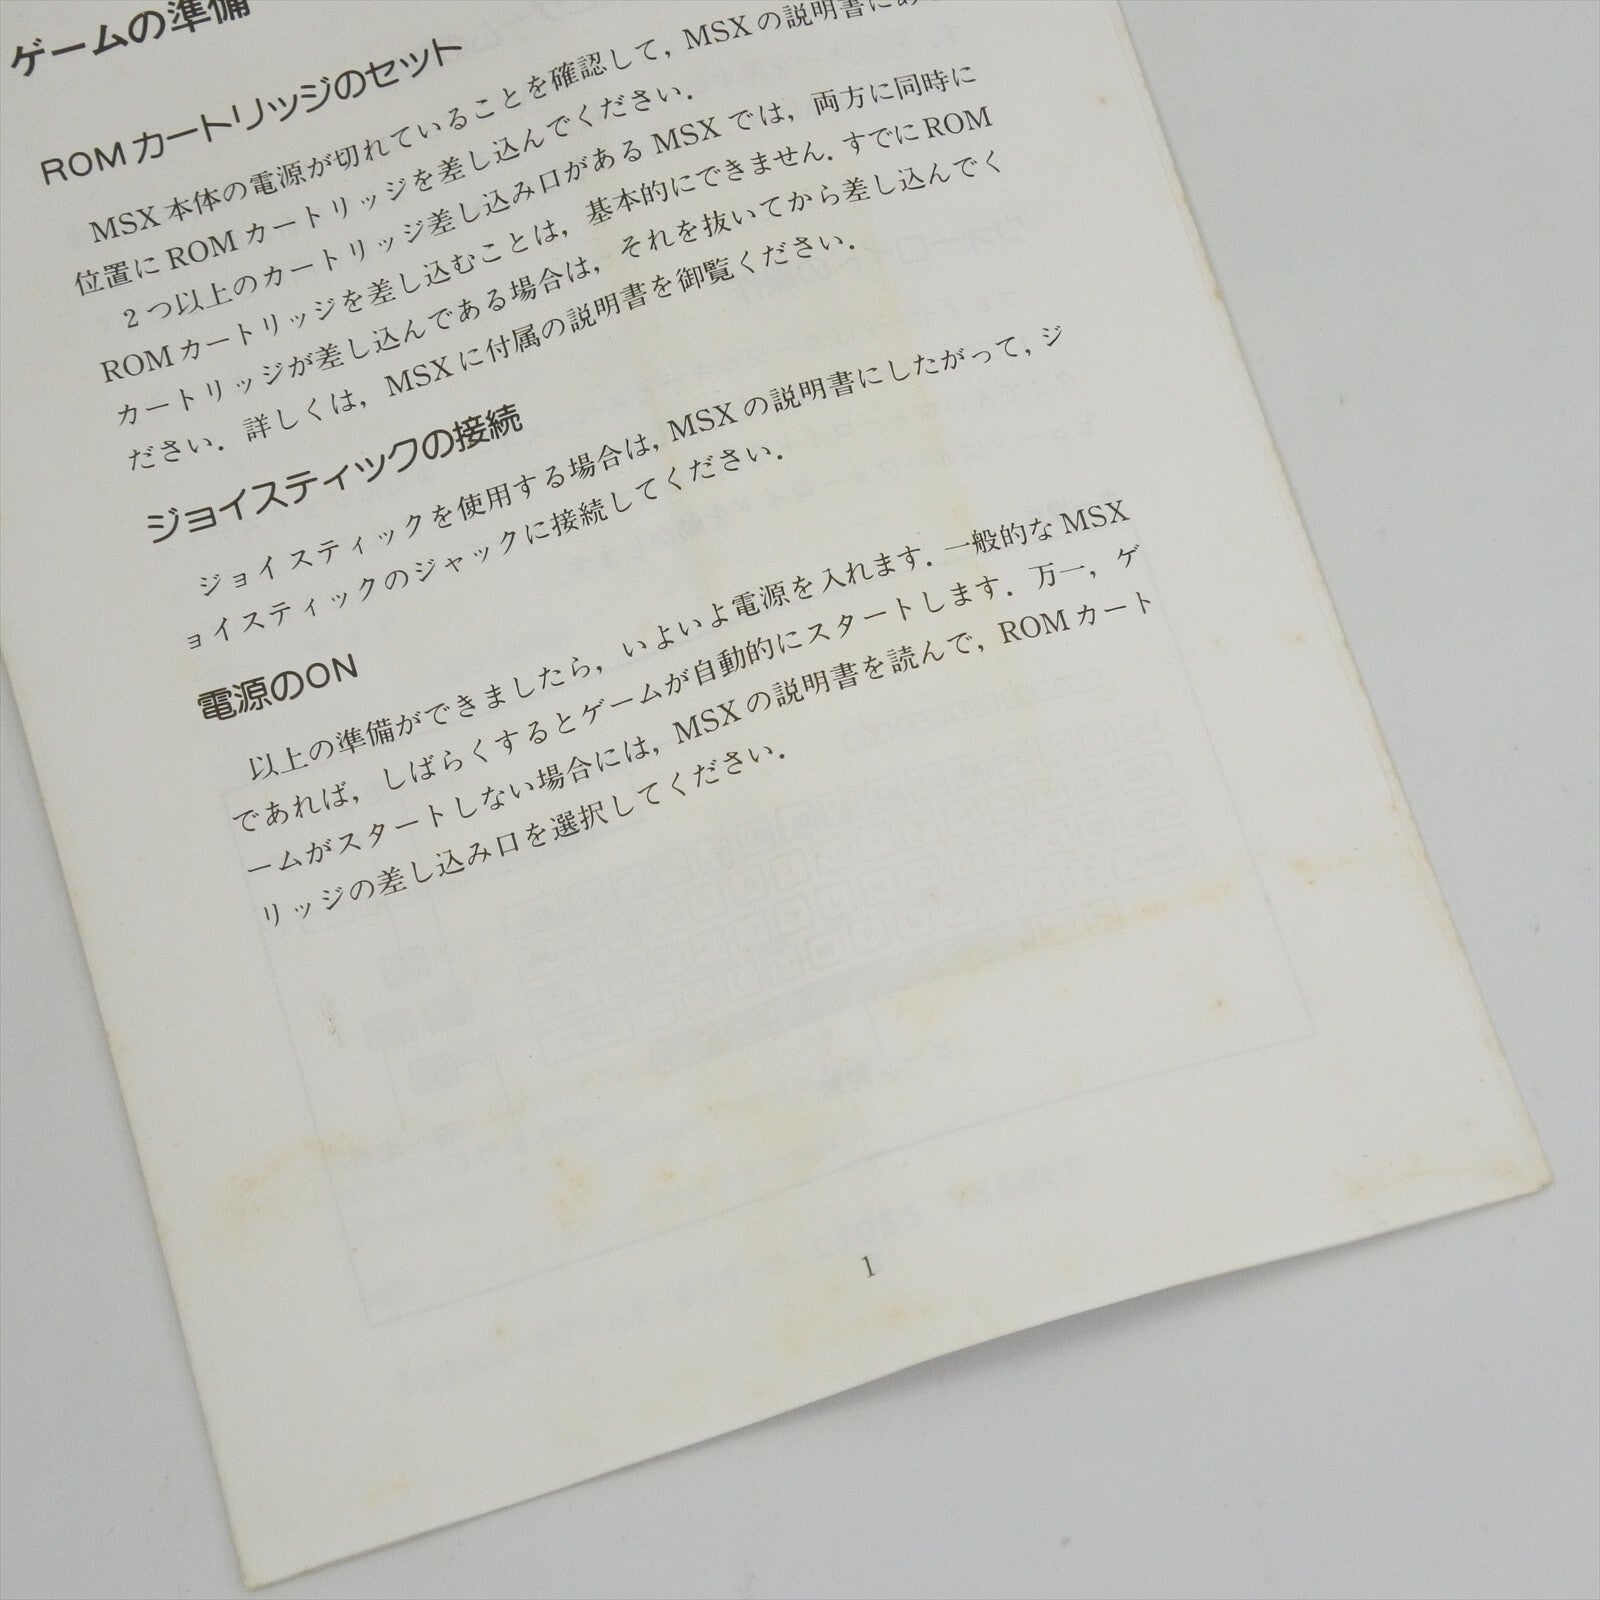 ゲームの準備
ROMカートリッジのセット
MSX本体の電源が切れていることを確認して，MSXの説明書にある
位置にROMカートリッジを差し込んでください．
2つ以上のカートリッジ差し込み口があるMSXでは，両方に同時に
ROMカートリッジを差し込むことは，基本的にできません．すでにROM
カートリッジが差し込んである場合は，それを抜いてから差し込んでく
ださい．詳しくは，MSXに付属の説明書を御覧ください．
ジョイスティックの接続
ジョイスティックを使用する場合は，MSXの説明書にしたがって，ジ
ョイスティックのジャックに接続してください．
電源のON
以上の準備ができましたら，いよいよ電源を入れます．一般的なMSX
であれば，しばらくするとゲームが自動的にスタートします．万一，ゲ
ームがスタートしない場合には，MSXの説明書を読んで，ROMカート
リッジの差し込み口を選択してください．
1